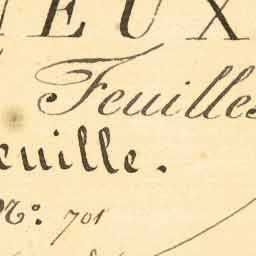 IEUX
Feuilles
euille.
N°: 701